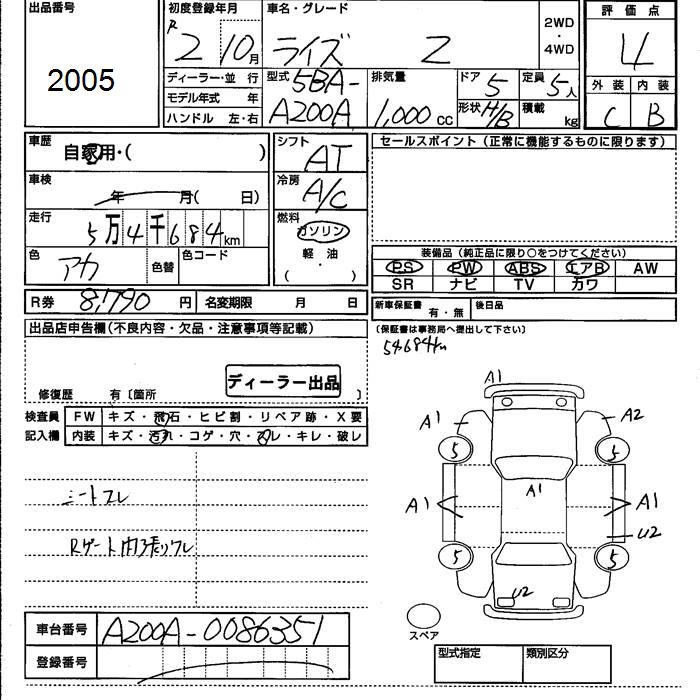 出品番号
2005
初度登録年月
R2 10月
車名・グレード
ライズ Z
2WD
・
4WD
評価点
4
外装 内装
C B
ディーラー・並行
モデル年式 年
ハンドル 左・右
型式
5BA-
A200A
排気量
1,000 cc
ドア 5
形状 H/B
定員 5人
積載 kg
車歴
自家用・( )
車検
年 月( 日)
走行
5万4千684km
色
アカ
色替
色コード
シフト
AT
冷房
A/C
燃料
ガソリン
軽・油
( )
セールスポイント(正常に機能するものに限ります)
装備品(純正品に限り○をつけてください)
PS PW ABS エアB AW
SR ナビ TV カワ
R券 8,790 円
名変期限 月 日
新車保証書
有・無
後日品
(保証書は事務局へ提出して下さい)
54684km
出品店申告欄(不良内容・欠品・注意事項等記載)
ディーラー出品
修復歴 有〔箇所 〕
検査員
記入欄
FW キズ・飛石・ヒビ割・リペア跡・X要
内装 キズ・汚れ・コゲ・穴・スレ・キレ・破レ
シートスレ
Rゲート内張りワレ
A1
A1 A2
5 5
A1
A1 A1
U2
5 5
U2
スペア
車台番号 A200A-0086351
登録番号
型式指定 類別区分